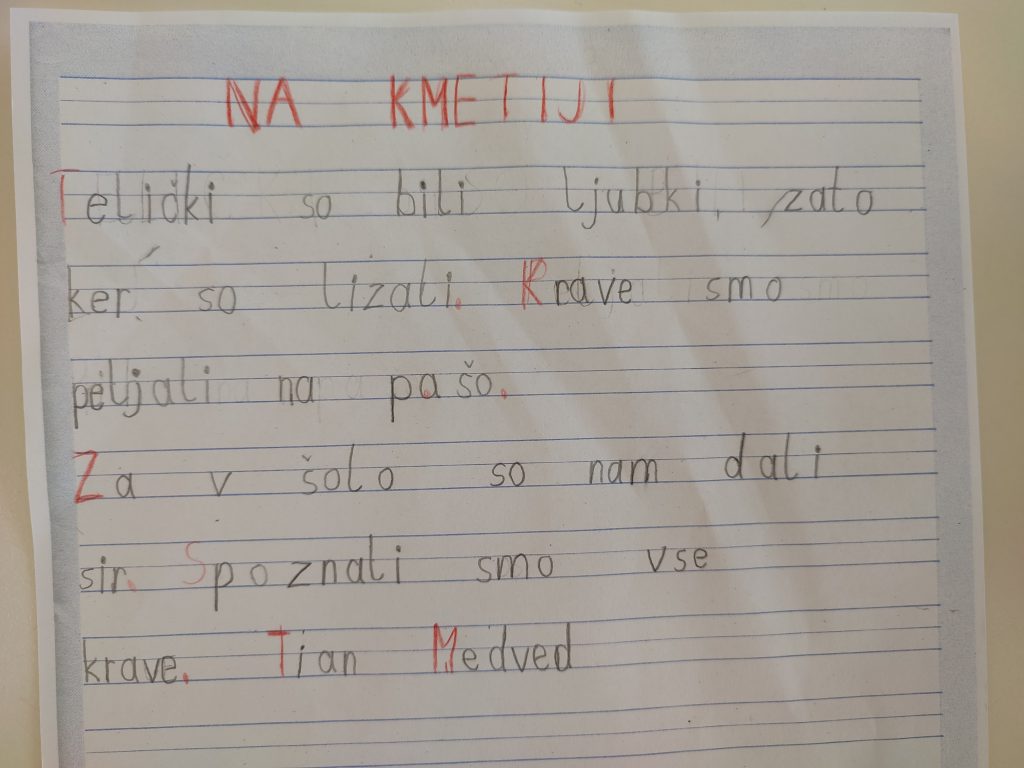 NA KMETIJI
Telički so bili ljubki, zato
ker so lizali. Krave smo
peljali na pašo.
Za v šolo so nam dali
sir. Spoznali smo vse
krave. Tian Medved